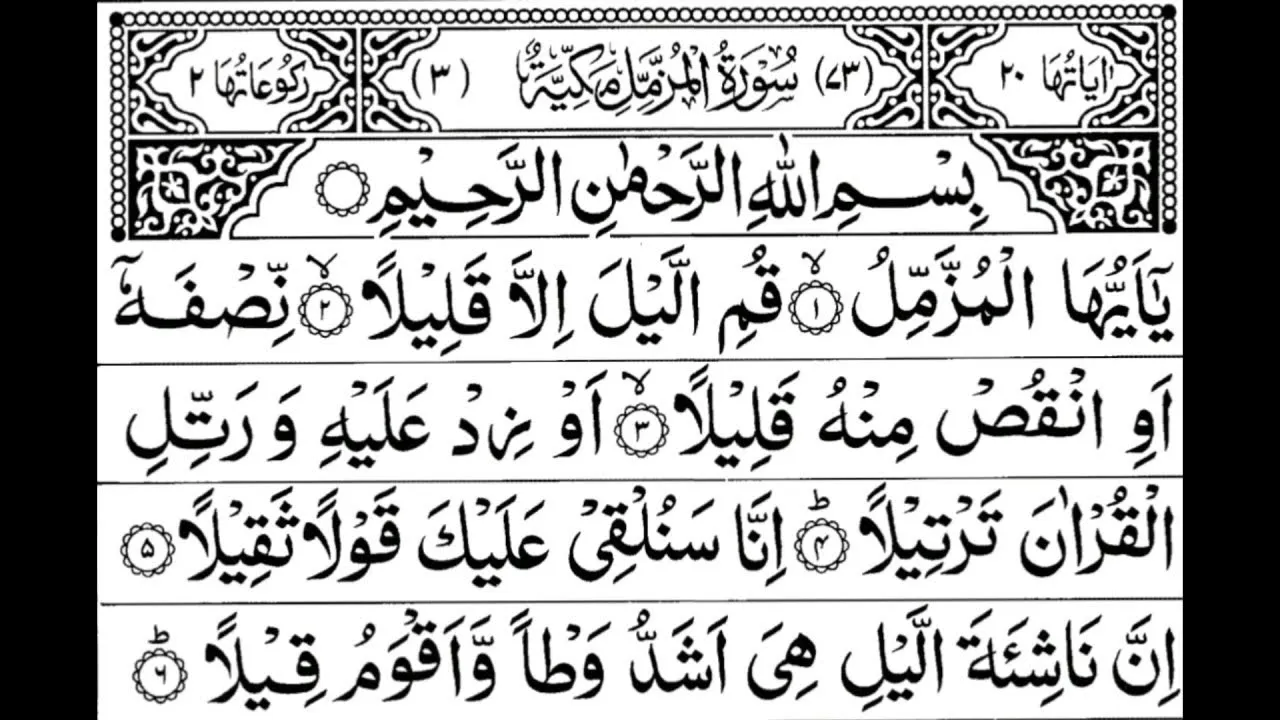 اٰيَاتُهَا ٢٠ (٧٣) سُوْرَةُ الْمُزَّمِّلِ مَكِّيَّةٌ (٣) رُكُوْعَاتُهَا ٢
بِسْمِ اللّٰهِ الرَّحْمٰنِ الرَّحِيْمِ
يٰٓاَيُّهَا الْمُزَّمِّلُ ۙ﴿١﴾ قُمِ الَّيْلَ اِلَّا قَلِيْلًا ۙ﴿٢﴾ نِّصْفَهٗٓ
اَوِ انْقُصْ مِنْهُ قَلِيْلًا ۙ﴿٣﴾ اَوْ زِدْ عَلَيْهِ وَ رَتِّلِ
الْقُرْاٰنَ تَرْتِيْلًا ؕ﴿۴﴾ اِنَّا سَنُلْقِيْ عَلَيْكَ قَوْلًا ثَقِيْلًا ﴿۵﴾
اِنَّ نَاشِئَةَ الَّيْلِ هِيَ اَشَدُّ وَطْاً وَّاَقْوَمُ قِيْلًا ؕ﴿۶﴾